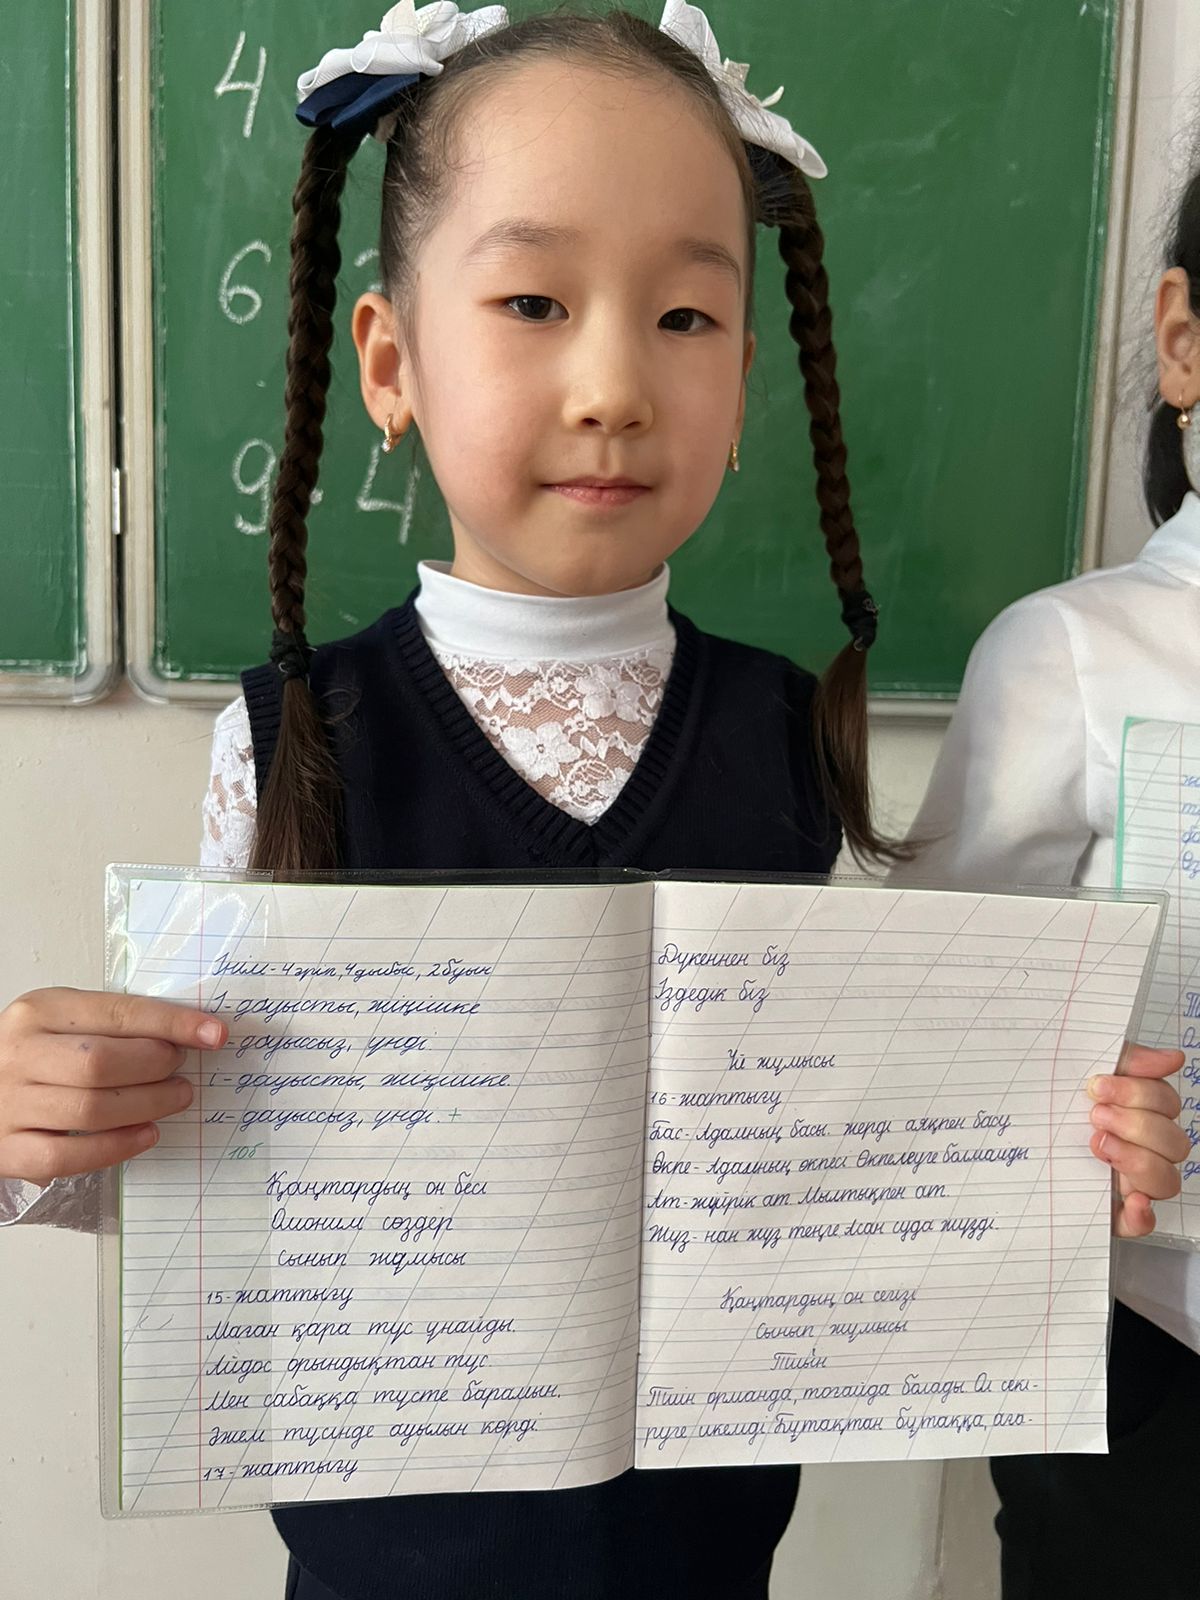 4
6
9 · 4
Інім - 4 әріп, 4 дыбыс, 2 буын
І - дауысты, жіңішке
- дауыссыз, үнді.
і - дауысты, жіңішке.
м - дауыссыз, үнді. +
10б
Қаңтардың он бесі
Омоним сөздер
Сынып жұмысы
15 - жаттығу
Маған қара түс ұнайды.
Айдос орындықтан түс.
Мен сабаққа түсте барамын.
Әжем түсінде ауылын көрді.
17 - жаттығу
Дүкеннен біз
Іздедік біз
Үй жұмысы
16 - жаттығу
Бас - Адамның басы. жерді аяқпен басу
Өкпе - Адамның өкпесі Өкпелеуге болмайды
Ат - жүйрік ат. Мылтықпен ат.
Жүз - нан жүз теңге Асан суда жүзді.
Қаңтардың он сегізі
Сынып жұмысы
Тиін
Тиін орманда, тоғайда болады. Ол секі-
руге икемді Бұтақтан бұтаққа, аға-